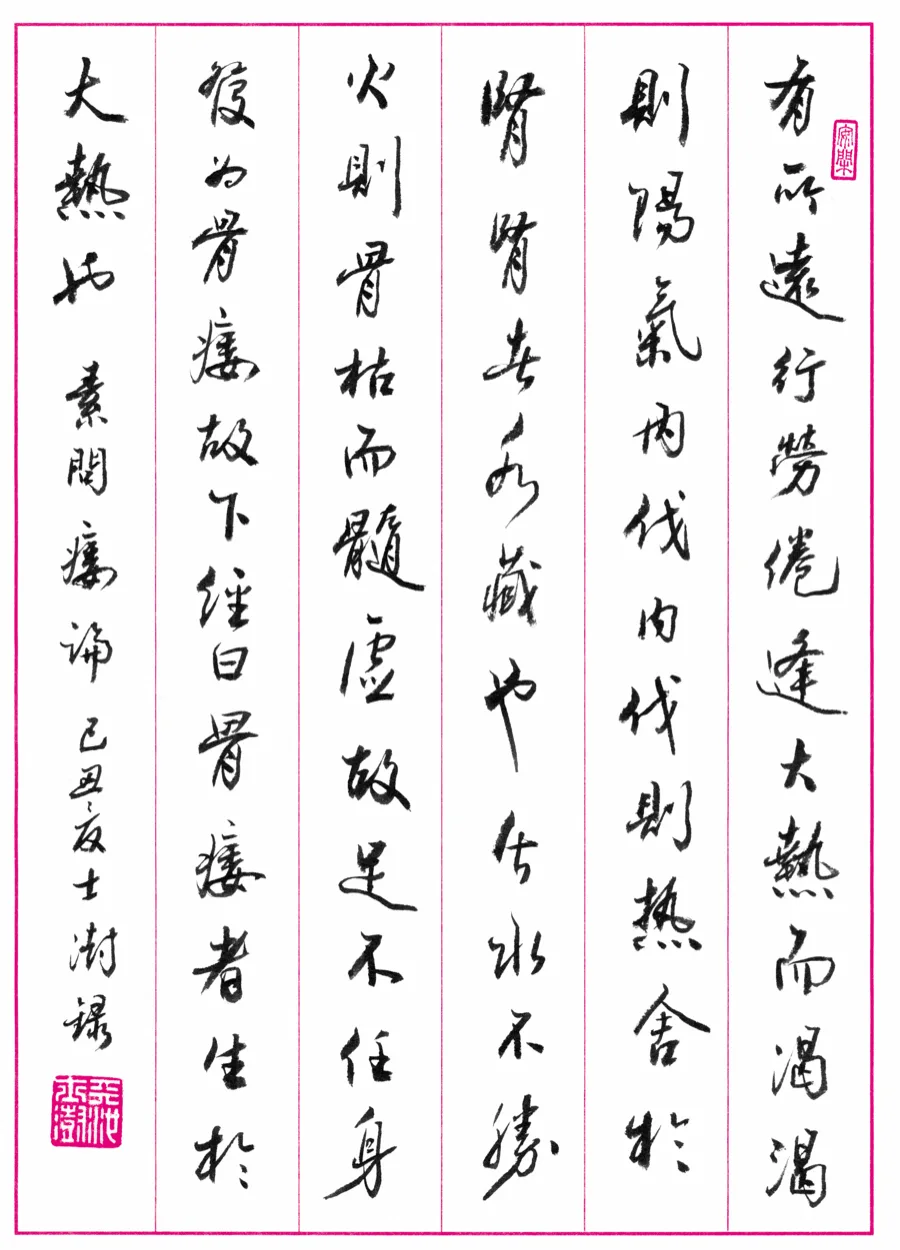 有所遠行勞倦逢大熱而渴渴
則陽氣內伐內伐則熱舍於
腎腎者水藏也今水不勝
火則骨枯而髓虛故足不任身
發為骨痿故下經曰骨痿者生於
大熱也 素問痿論 己丑之夏士澍錄